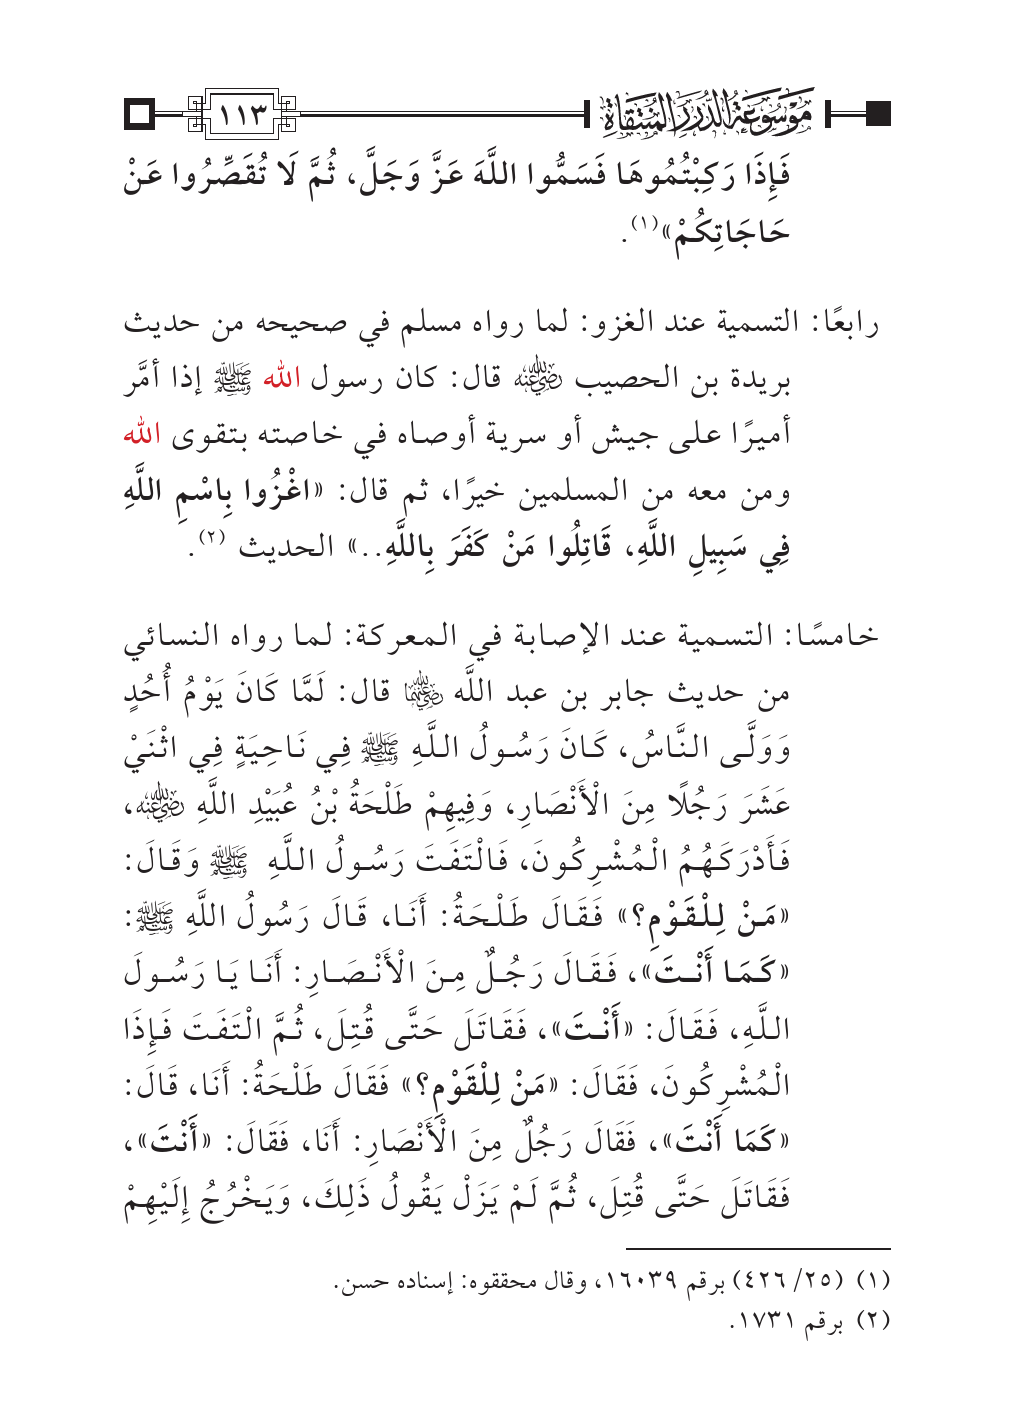 موسوعة الدرر المنتقاة
١١٣
فَإِذَا رَكِبْتُمُوهَا فَسَمُّوا اللَّهَ عَزَّ وَجَلَّ، ثُمَّ لَا تُقَصِّرُوا عَنْ
حَاجَاتِكُمْ»(١).
رابعًا: التسمية عند الغزو: لما رواه مسلم في صحيحه من حديث
بريدة بن الحصيب رضي الله عنه قال: كان رسول الله ﷺ إذا أمَّر
أميرًا على جيش أو سرية أوصاه في خاصته بتقوى الله
ومن معه من المسلمين خيرًا، ثم قال: «اغْزُوا بِاسْمِ اللَّهِ
فِي سَبِيلِ اللَّهِ، قَاتِلُوا مَنْ كَفَرَ بِاللَّهِ..» الحديث (٢).
خامسًا: التسمية عند الإصابة في المعركة: لما رواه النسائي
من حديث جابر بن عبد اللَّه رضي الله عنهما قال: لَمَّا كَانَ يَوْمُ أُحُدٍ
وَوَلَّى النَّاسُ، كَانَ رَسُولُ اللَّهِ ﷺ فِي نَاحِيَةٍ فِي اثْنَيْ
عَشَرَ رَجُلًا مِنَ الْأَنْصَارِ، وَفِيهِمْ طَلْحَةُ بْنُ عُبَيْدِ اللَّهِ رضي الله عنه،
فَأَدْرَكَهُمُ الْمُشْرِكُونَ، فَالْتَفَتَ رَسُولُ اللَّهِ ﷺ وَقَالَ:
«مَنْ لِلْقَوْمِ؟» فَقَالَ طَلْحَةُ: أَنَا، قَالَ رَسُولُ اللَّهِ ﷺ:
«كَمَا أَنْتَ»، فَقَالَ رَجُلٌ مِنَ الْأَنْصَارِ: أَنَا يَا رَسُولَ
اللَّهِ، فَقَالَ: «أَنْتَ»، فَقَاتَلَ حَتَّى قُتِلَ، ثُمَّ الْتَفَتَ فَإِذَا
الْمُشْرِكُونَ، فَقَالَ: «مَنْ لِلْقَوْمِ؟» فَقَالَ طَلْحَةُ: أَنَا، قَالَ:
«كَمَا أَنْتَ»، فَقَالَ رَجُلٌ مِنَ الْأَنْصَارِ: أَنَا، فَقَالَ: «أَنْتَ»،
فَقَاتَلَ حَتَّى قُتِلَ، ثُمَّ لَمْ يَزَلْ يَقُولُ ذَلِكَ، وَيَخْرُجُ إِلَيْهِمْ
(١) (٢٥/ ٤٢٦) برقم ١٦٠٣٩، وقال محققوه: إسناده حسن.
(٢) برقم ١٧٣١.